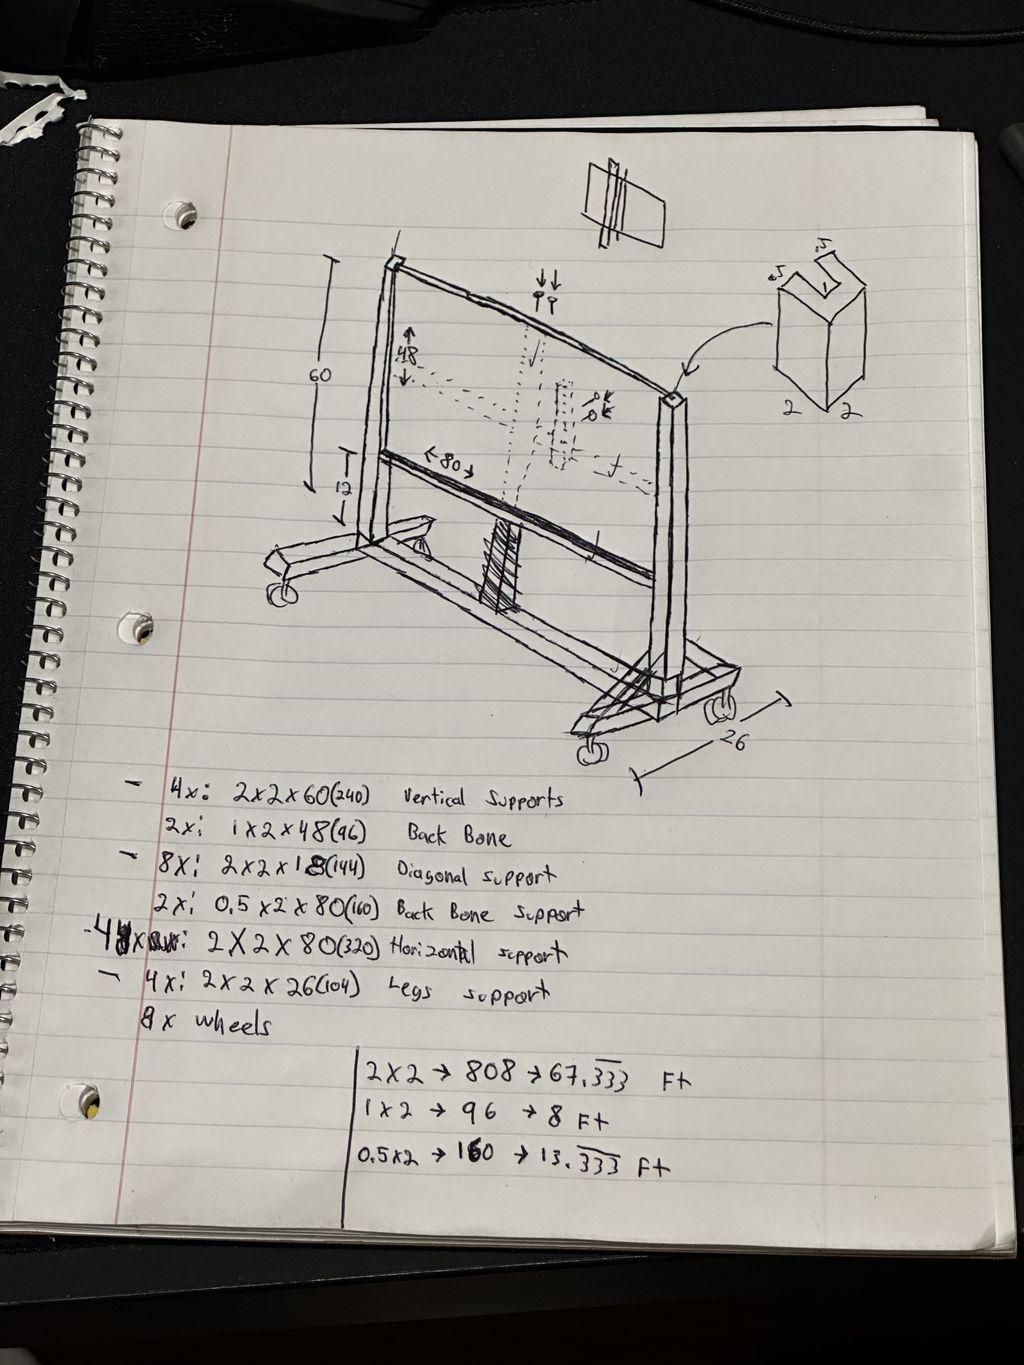 .5
.5
60
48
80
12
2 2
26
- 4x: 2x2x60(240) Vertical Supports
2x: 1x2x48(96) Back Bone
- 8x: 2x2x18(144) Diagonal support
2x: 0.5x2x80(160) Back Bone support
-4x: 2x2x80(320) Horizontal support
- 4x: 2x2x26(104) Legs support
8x wheels
2x2 → 808 → 67.333 Ft
1x2 → 96 → 8 Ft
0.5x2 → 160 → 13.333 Ft